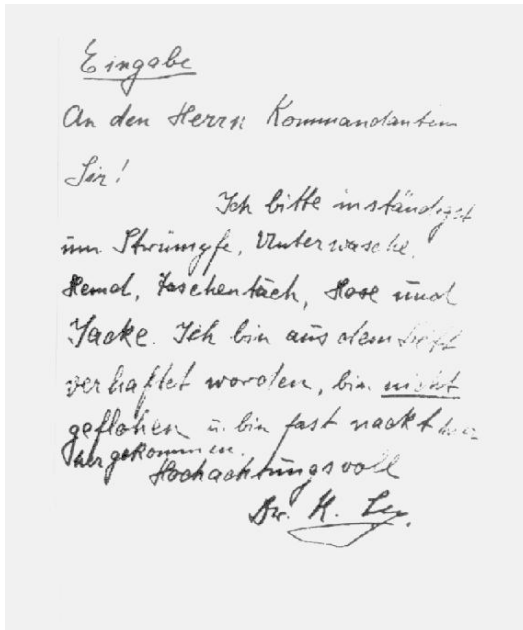 Eingabe
An den Herrn Kommandanten
Sir!
Ich bitte inständigst
um Strümpfe, Unterwäsche,
Hemd, Taschentuch, Hose und
Jacke. Ich bin aus dem
verhaftet worden, bin nicht
geflohen u. bin fast nackt
hergekommen.
Hochachtungsvoll
Dr. R. Ley.